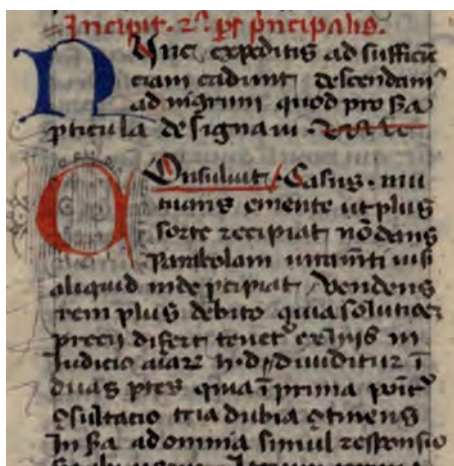 Incipit. 2ᵃ. ps p̃ncipalis.
Nunc expeditis ad sufficiē
ciam cadunt descendam⁹
ad nigrum quod pro sᵃ
pticula designaui
Consuluit / Casus. mu
tuans emente ut plus
sorte recipiat nō dans
Parabolam iurament̄i nisi
aliquid inde pcipiat / Vendens
rem plus debito quia solutiōeȝ
precii difert tenet᷑ ex hiis in
Judicio aīaꝝ h. d. diuiditur ī
duas ptes quia ī prima poīt᷑
ꝯsultacio tria dubia ꝯtinens
In sᵃ ad omnia simul responsio